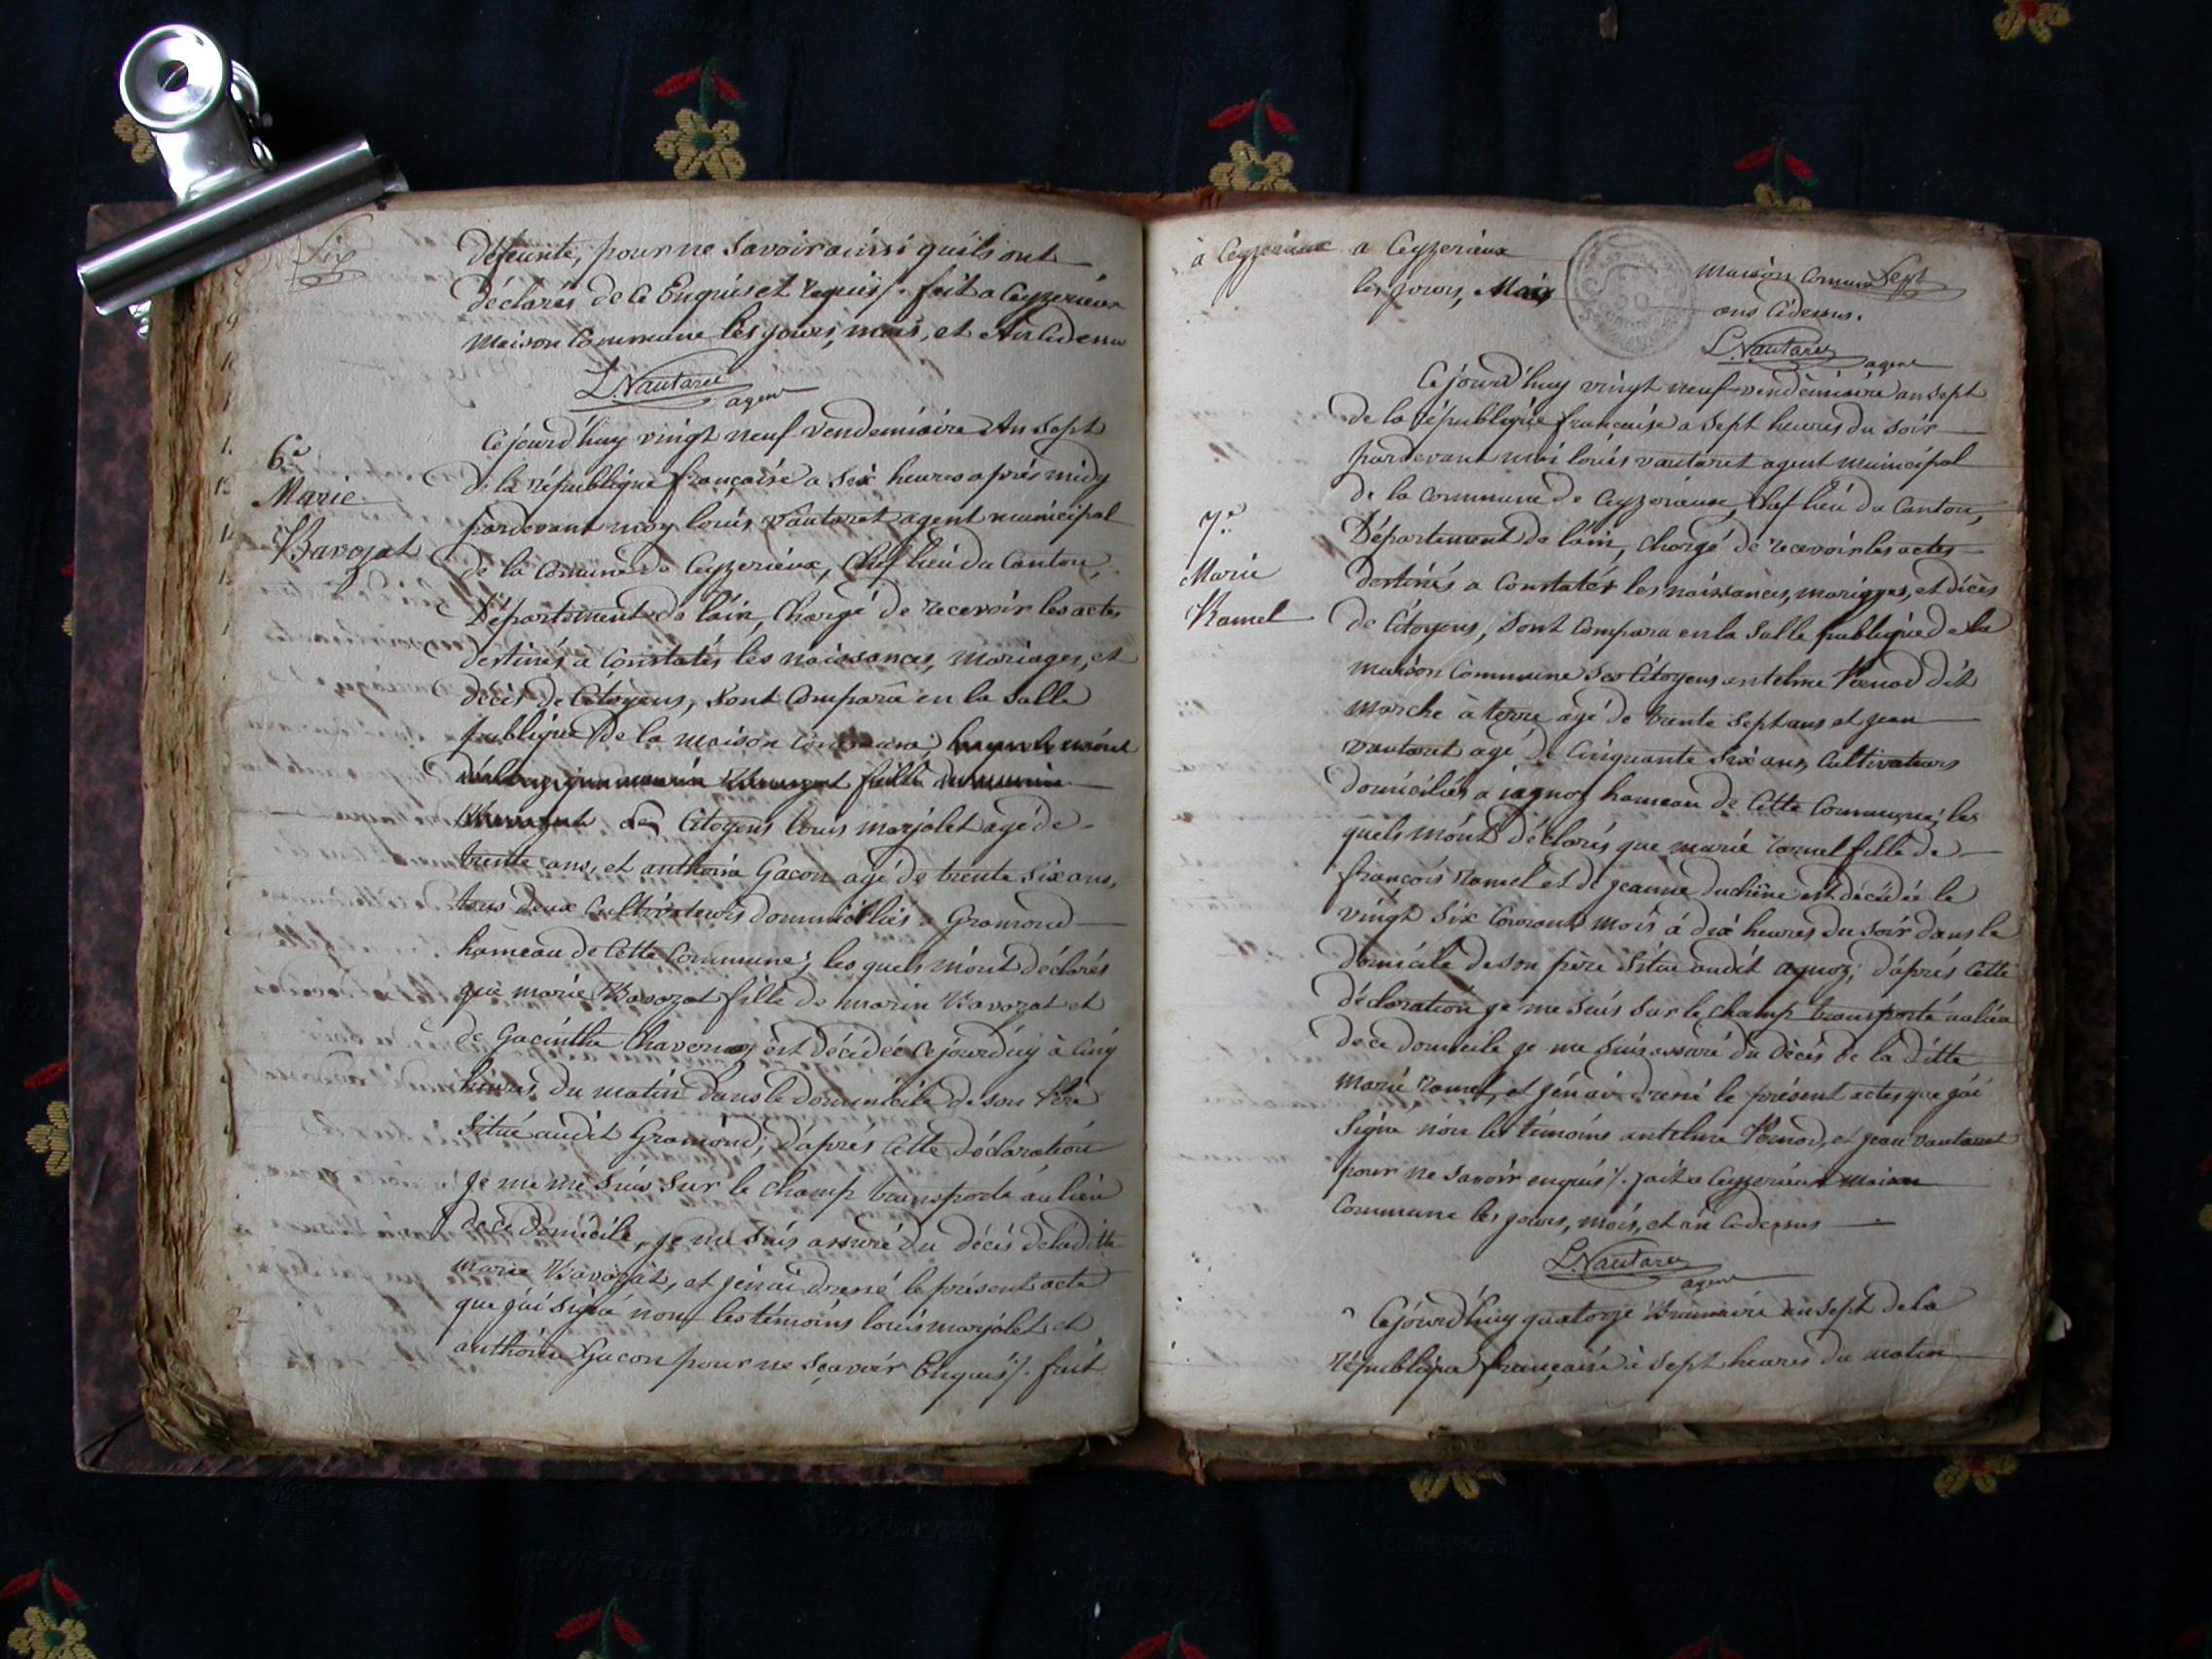 Six
deffunte, pour ne Savoir ainsi quils ont
déclarés de ce Enquis et requis /. fait a Ceyzerieux
maison Commune les jours, mois, et An Cidessus
L. Vautaret
agent
6e
Marie
Bavozat
Cejourd'huy vingt neuf vendemiaire An Sept
de la république française a Six heures après midy
pardevant moy louis vautaret agent municipal
de la Comune de Ceyzerieux, Chef lieu du Canton,
Département de l'ain, Chargé de recevoir les actes
destinés a Constatés les naissances, mariages, et
décès de Citoyens, sont Comparu en la Salle
publique de la maison Commune,
Citoyens louis marjolet agé de
trente ans, et anthoine Gacon agé de trente Six ans,
tous deux Cultivateurs domiciliés a Gramond
hameau de Cette Commune, les quels m'ont déclarés
que marie Bavozat fille de marin Bavozat et
de Gacinthe Chavernoz est décédée Cejourd'uy à Cinq
heures du matin dans le domicile de son Père
Situé audit Gramond; d'après Cette déclaration
je me me Suis Sur le Champ transporté au lieu
de ce Domicile, je me Suis assuré du décès de la ditte
marie Bavozat, et j'en ai dressé le présent acte
que j'ai Signé non les témoins louis marjolet et
anthoine Gacon pour ne Sçavoir Enquis /. fait
à Ceyzerieux a Ceyzerieux maison Comune Sept
les jours, Mois ans Cidessus.
L. Vautaret
agent
Cejourd'huy vingt neuf vendémiaire an Sept
de la république française a Sept heures du Soir
pardevant moi louis vautaret agent municipal
de la Commune de Ceyzerieux, Chef lieu du Canton,
7e
Marie
Ramel
Département de l'ain, Chargé de recevoir les actes
destinés a Constatér les naissances, mariages, et décès
de Citoyens, Sont Comparu en la Salle publique de la
maison Commune les Citoyens antelme Pernod dit
marche à terre agé de trente Sept ans et jean
vautaret agé de Cinquante Six ans, Cultivateurs
domiciliés a iagnoz hameau de Cette Commune; les
quels m'ont déclarés que marie ramel fille de
françois ramel et de jeanne duchêne est décédée le
vingt Six Courant mois à dix heures du Soir dans le
domicile de son père Situé audit agnoz; d'après Cette
déclaration je me Suis Sur le Champ transporté au lieu
de ce domicile je me Suis assuré du Décès de la ditte
marie ramel, et j'en ai dressé le présent actes que j'ai
Signé non les témoins antelme Pernod, et jean vautaret
pour ne Savoir enquis /. fait a Ceyzerieux Maison
Commune les jours, mois, et an Cidessus
L. Vautaret
agent
Cejourd'huy quatorze Brumaire an Sept de la
république française à Sept heures du matin